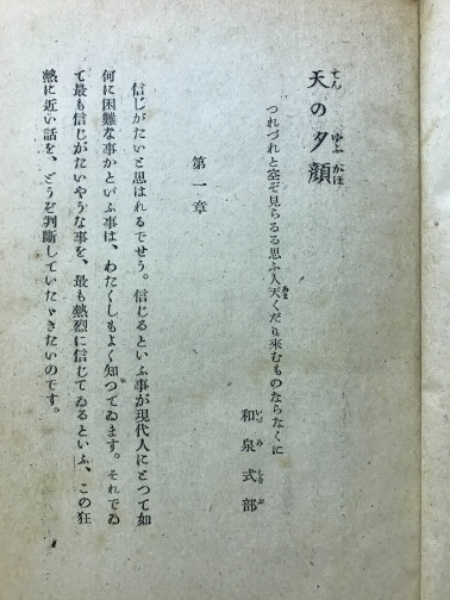 天の夕顔
つれづれと空ぞ見らるる思ふ人天くだり来むものならなくに
和泉式部
第一章
信じがたいと思はれるでせう。信じるといふ事が現代人にとつて如
何に困難な事かといふ事は、わたくしもよく知つてゐます。それでゐ
て最も信じがたいやうな事を、最も熱烈に信じてゐるといふ、この狂
熱に近い話を、どうぞ判断していたゞきたいのです。